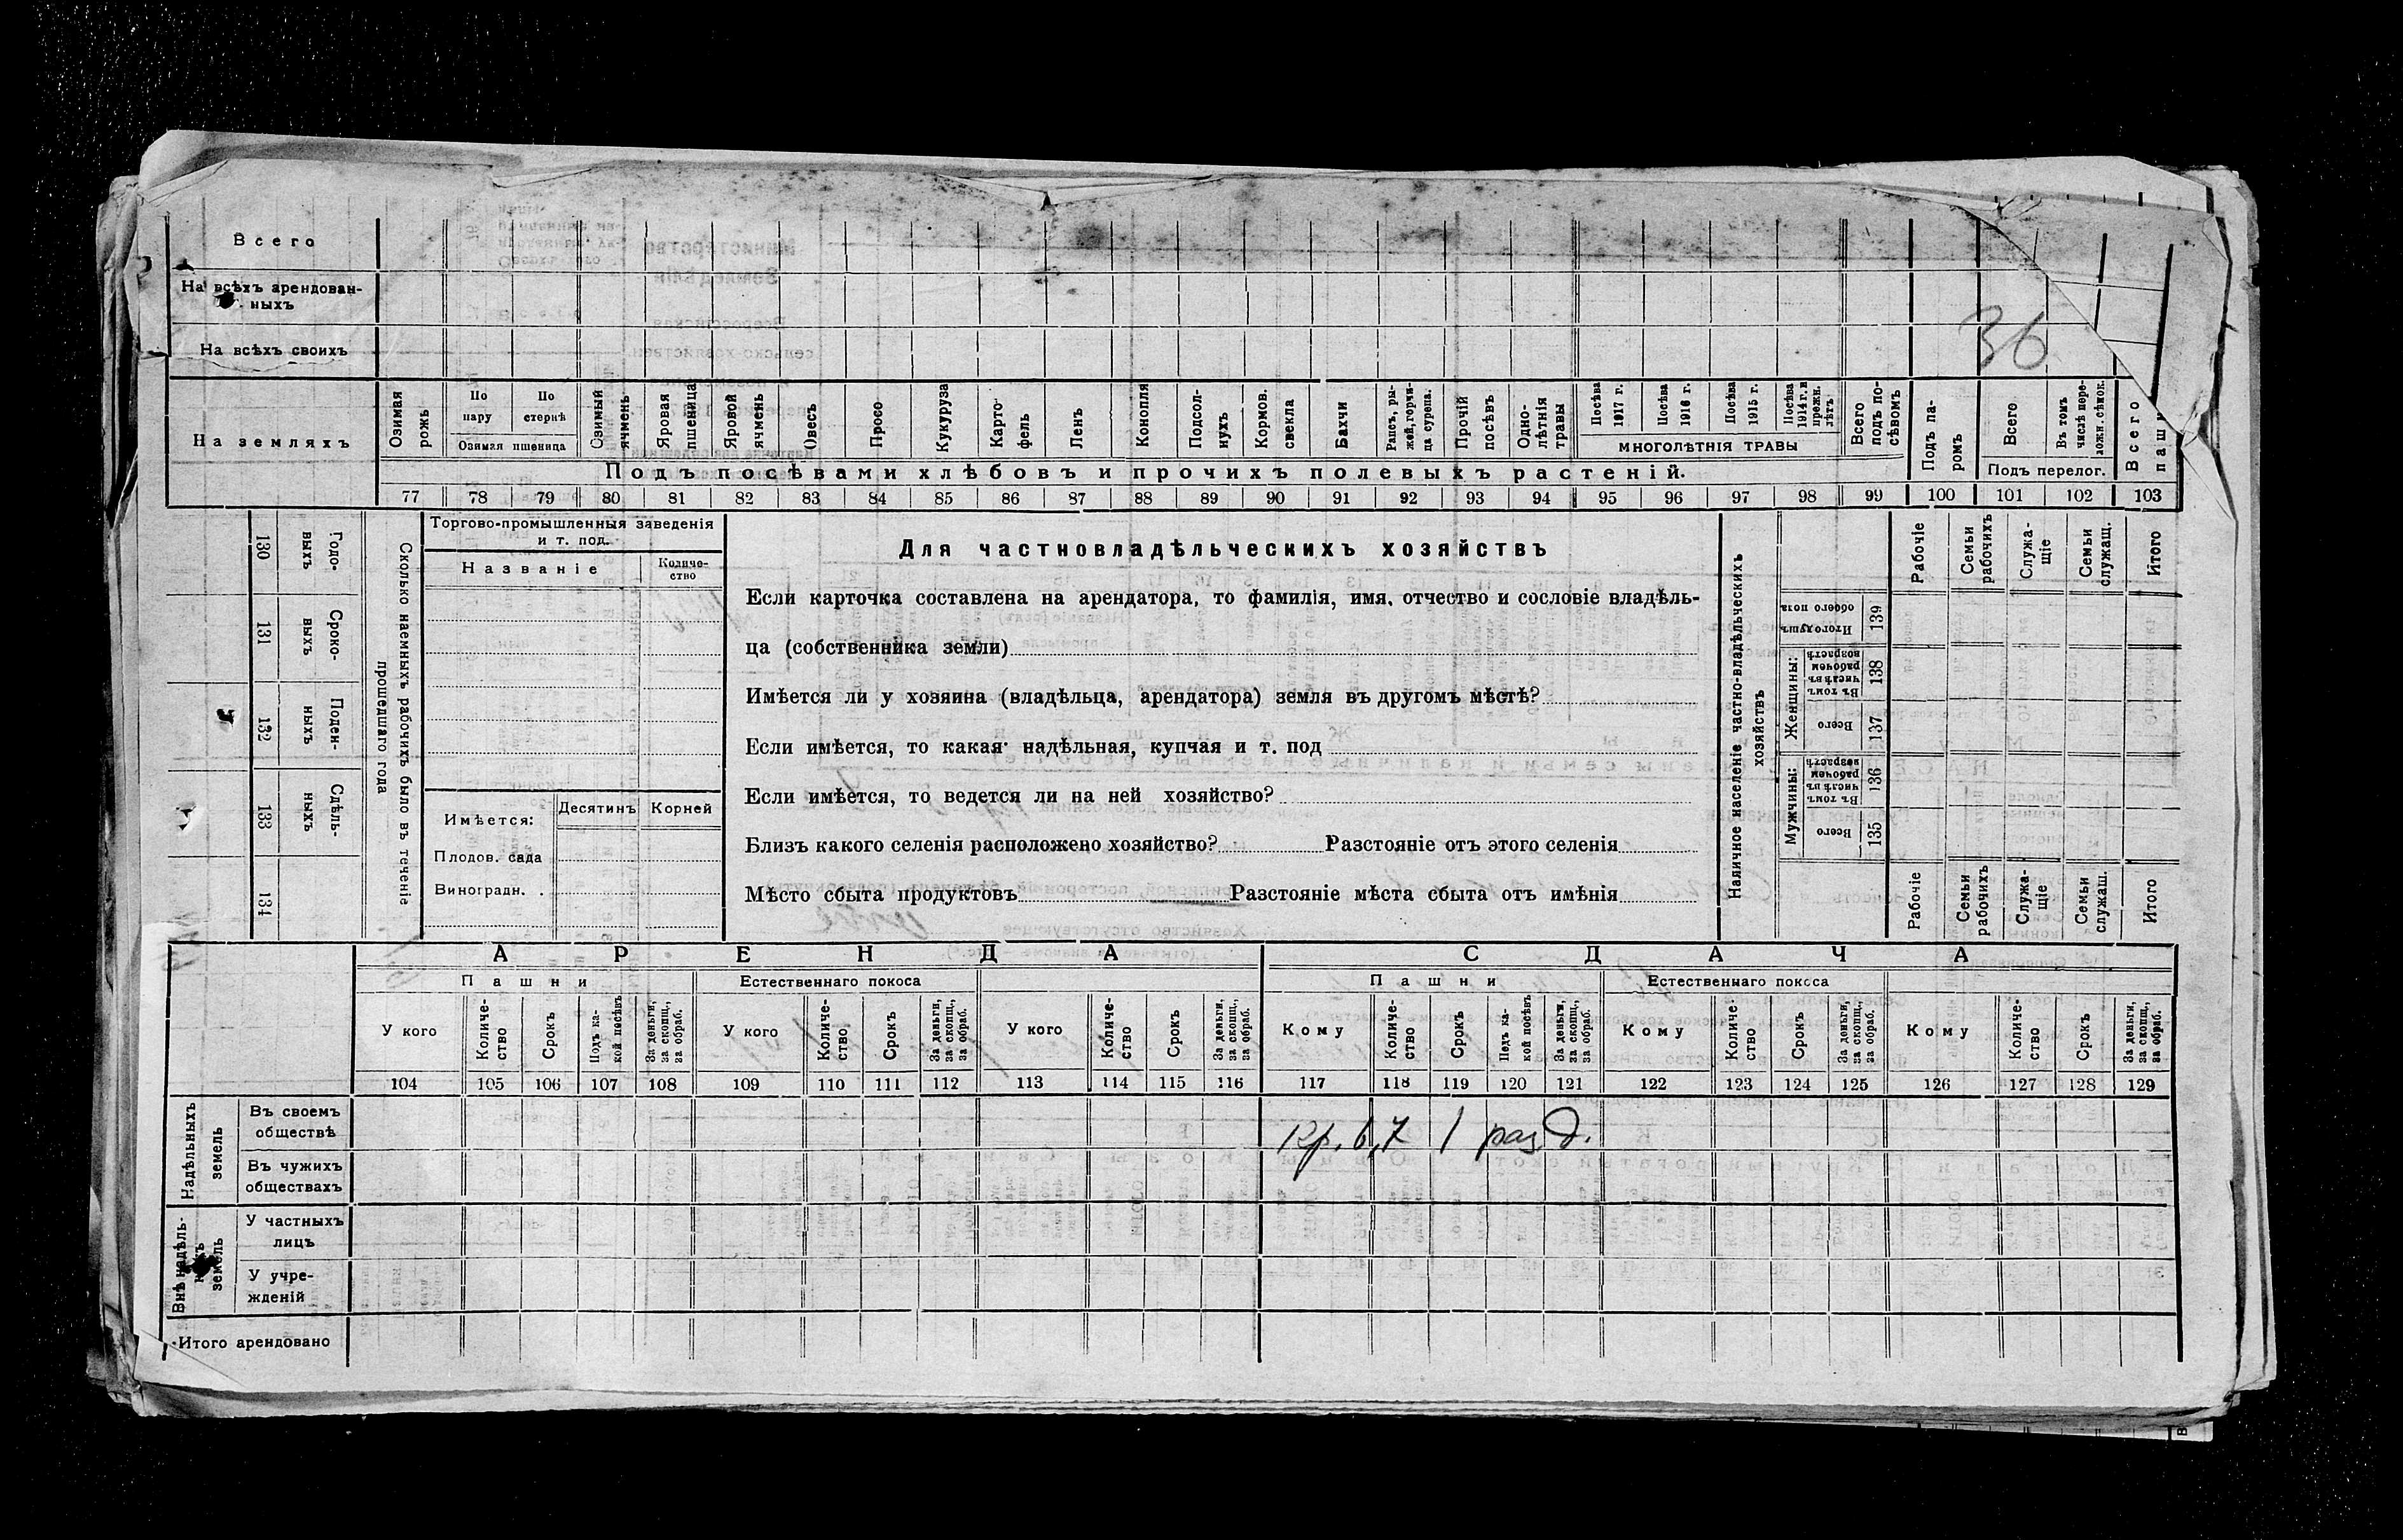 Всего
На всѣхъ арендован-
ныхъ
На всѣхъ своихъ
36
На земляхъ
Озимая рожь
По пару
По стернѣ
Озимая пшеница
Озимый ячмень
Яровая пшеница
Яровой ячмень
Овесъ
Просо
Кукуруза
Карто-
фель
Ленъ
Конопля
Подсол-
нухъ
Кормов. свекла
Бахчи
Рапсъ, ры-
жей, горчи-
ца сурепа.
Прочій посѣвъ
Одно-
лѣтнія травы
Посѣва 1917 г.
Посѣва 1916 г.
Посѣва 1915 г.
Посѣва 1914 г. и прежн. лѣтъ
многолѣтнія травы
Всего подъ по-
сѣвомъ
Подъ па-
ромъ
Всего
Въ томъ числѣ пере-
ложн. сѣнок.
Подъ перелог.
Всего
Подъ посѣвами хлѣбовъ и прочихъ полевыхъ растеній.
77 78 79 80 81 82 83 84 85 86 87 88 89 90 91 92 93 94 95 96 97 98 99 100 101 102 103
130 Годо-
выхъ
131 Сроко-
выхъ
132 Поден-
ныхъ
133 Сдѣль-
ныхъ
134
Сколько наемныхъ рабочихъ было въ теченіе
прошедшаго года
Торгово-промышленныя заведенія
и т. под.
Названіе
Количе-
ство
Имѣется:
Десятинъ
Корней
Плодов. сада
Виноградн. .
Для частновладѣльческихъ хозяйствъ
Если карточка составлена на арендатора, то фамилія, имя, отчество и сословіе владѣль-
ца (собственника земли)
Имѣется ли у хозяина (владѣльца, арендатора) земля въ другомъ мѣстѣ?
Если имѣется, то какая: надѣльная, купчая и т. под
Если имѣется, то ведется ли на ней хозяйство?
Близъ какого селенія расположено хозяйство? Разстояніе отъ этого селенія
Мѣсто сбыта продуктовъ Разстояніе мѣста сбыта отъ имѣнія
Наличное населеніе частно-владѣльческихъ
хозяйствъ
Рабочіе
Семьи рабочихъ
Служа-
щіе
Семьи служащ.
Итого
Итого душъ обоего пола 139
Женщины:
Въ томъ числѣ въ рабочемъ возрастѣ 138
Всего 137
Мужчины:
Въ томъ числѣ въ рабочемъ возрастѣ 136
Всего 135
Рабочіе
Семьи рабочихъ
Служа-
щіе
Семьи служащ.
Итого
АРЕНДА
СДАЧА
Пашни
Естественнаго покоса
Пашни
Естественнаго покоса
У кого
Количе-
ство
Срокъ
Подъ ка-
кой посѣвъ
За деньги, за скопщ., за обраб.
У кого
Количе-
ство
Срокъ
За деньги, за скопщ., за обраб.
У кого
Количе-
ство
Срокъ
За деньги, за скопщ., за обраб.
Кому
Количе-
ство
Срокъ
Подъ ка-
кой посѣвъ
За деньги, за скопщ., за обраб.
Кому
Количе-
ство
Срокъ
За деньги, за скопщ., за обраб.
Кому
Количе-
ство
Срокъ
За деньги, за скопщ., за обраб.
104 105 106 107 108 109 110 111 112 113 114 115 116 117 118 119 120 121 122 123 124 125 126 127 128 129
Надѣльныхъ земель
Въ своемъ
обществѣ
Кр. 6,7 1 раз д.
Въ чужихъ
обществахъ
У частныхъ
лицъ
У учре-
жденій
Итого арендовано